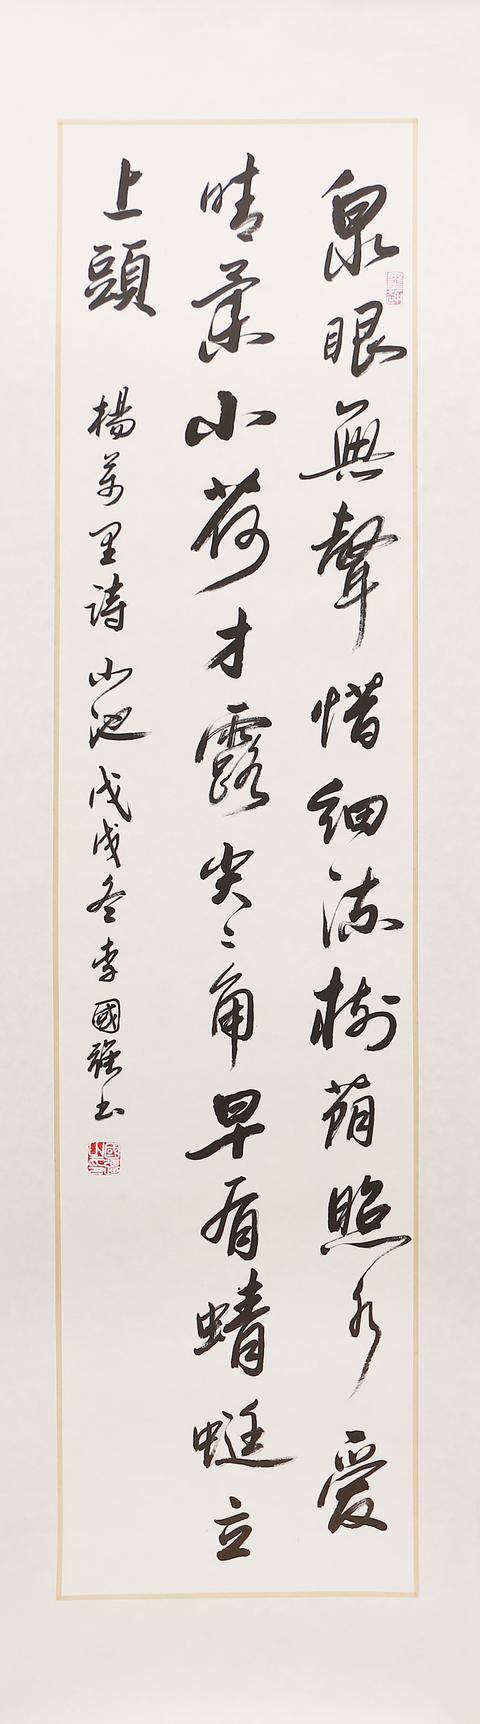 泉眼無聲惜細流樹蔭照水愛
晴柔小荷才露尖〻角早有蜻蜓立
上頭
楊萬里詩小池戊戌冬李國強书